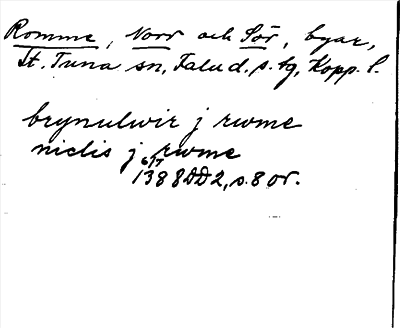 Romme, Norr och Sör, byar,
St. Tuna sn, Falu d. s. tg, Kopp. l.
brynulwir j rwme
niclis j rwme
6/7
1388 DD2, s. 8 or.